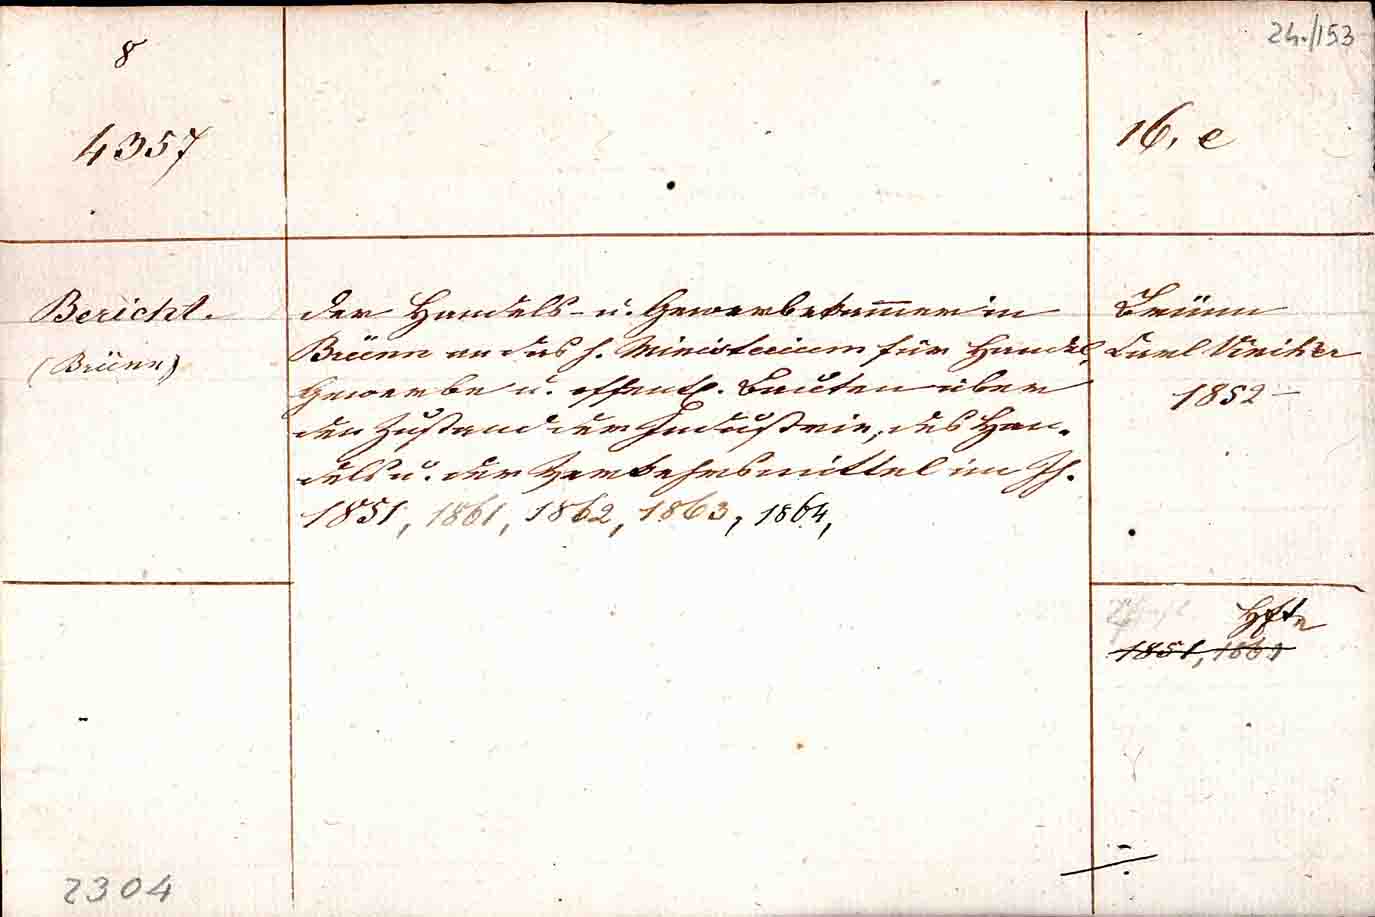 8
24./153
4357
16, e
Bericht.
(Brünn)
der Handels- u. Gewerbekam̅er in
Brünn an das h. Ministerium für Handel,
Gewerbe u. öffentl. Bauten über
den Zustand der Industrie, des Han-
dels u. der Verkehrsmittel im Jh.
1851, 1861, 1862, 1863, 1864,
Brünn
Carl Winiker
1852
Hfte
1851, 1861
2304